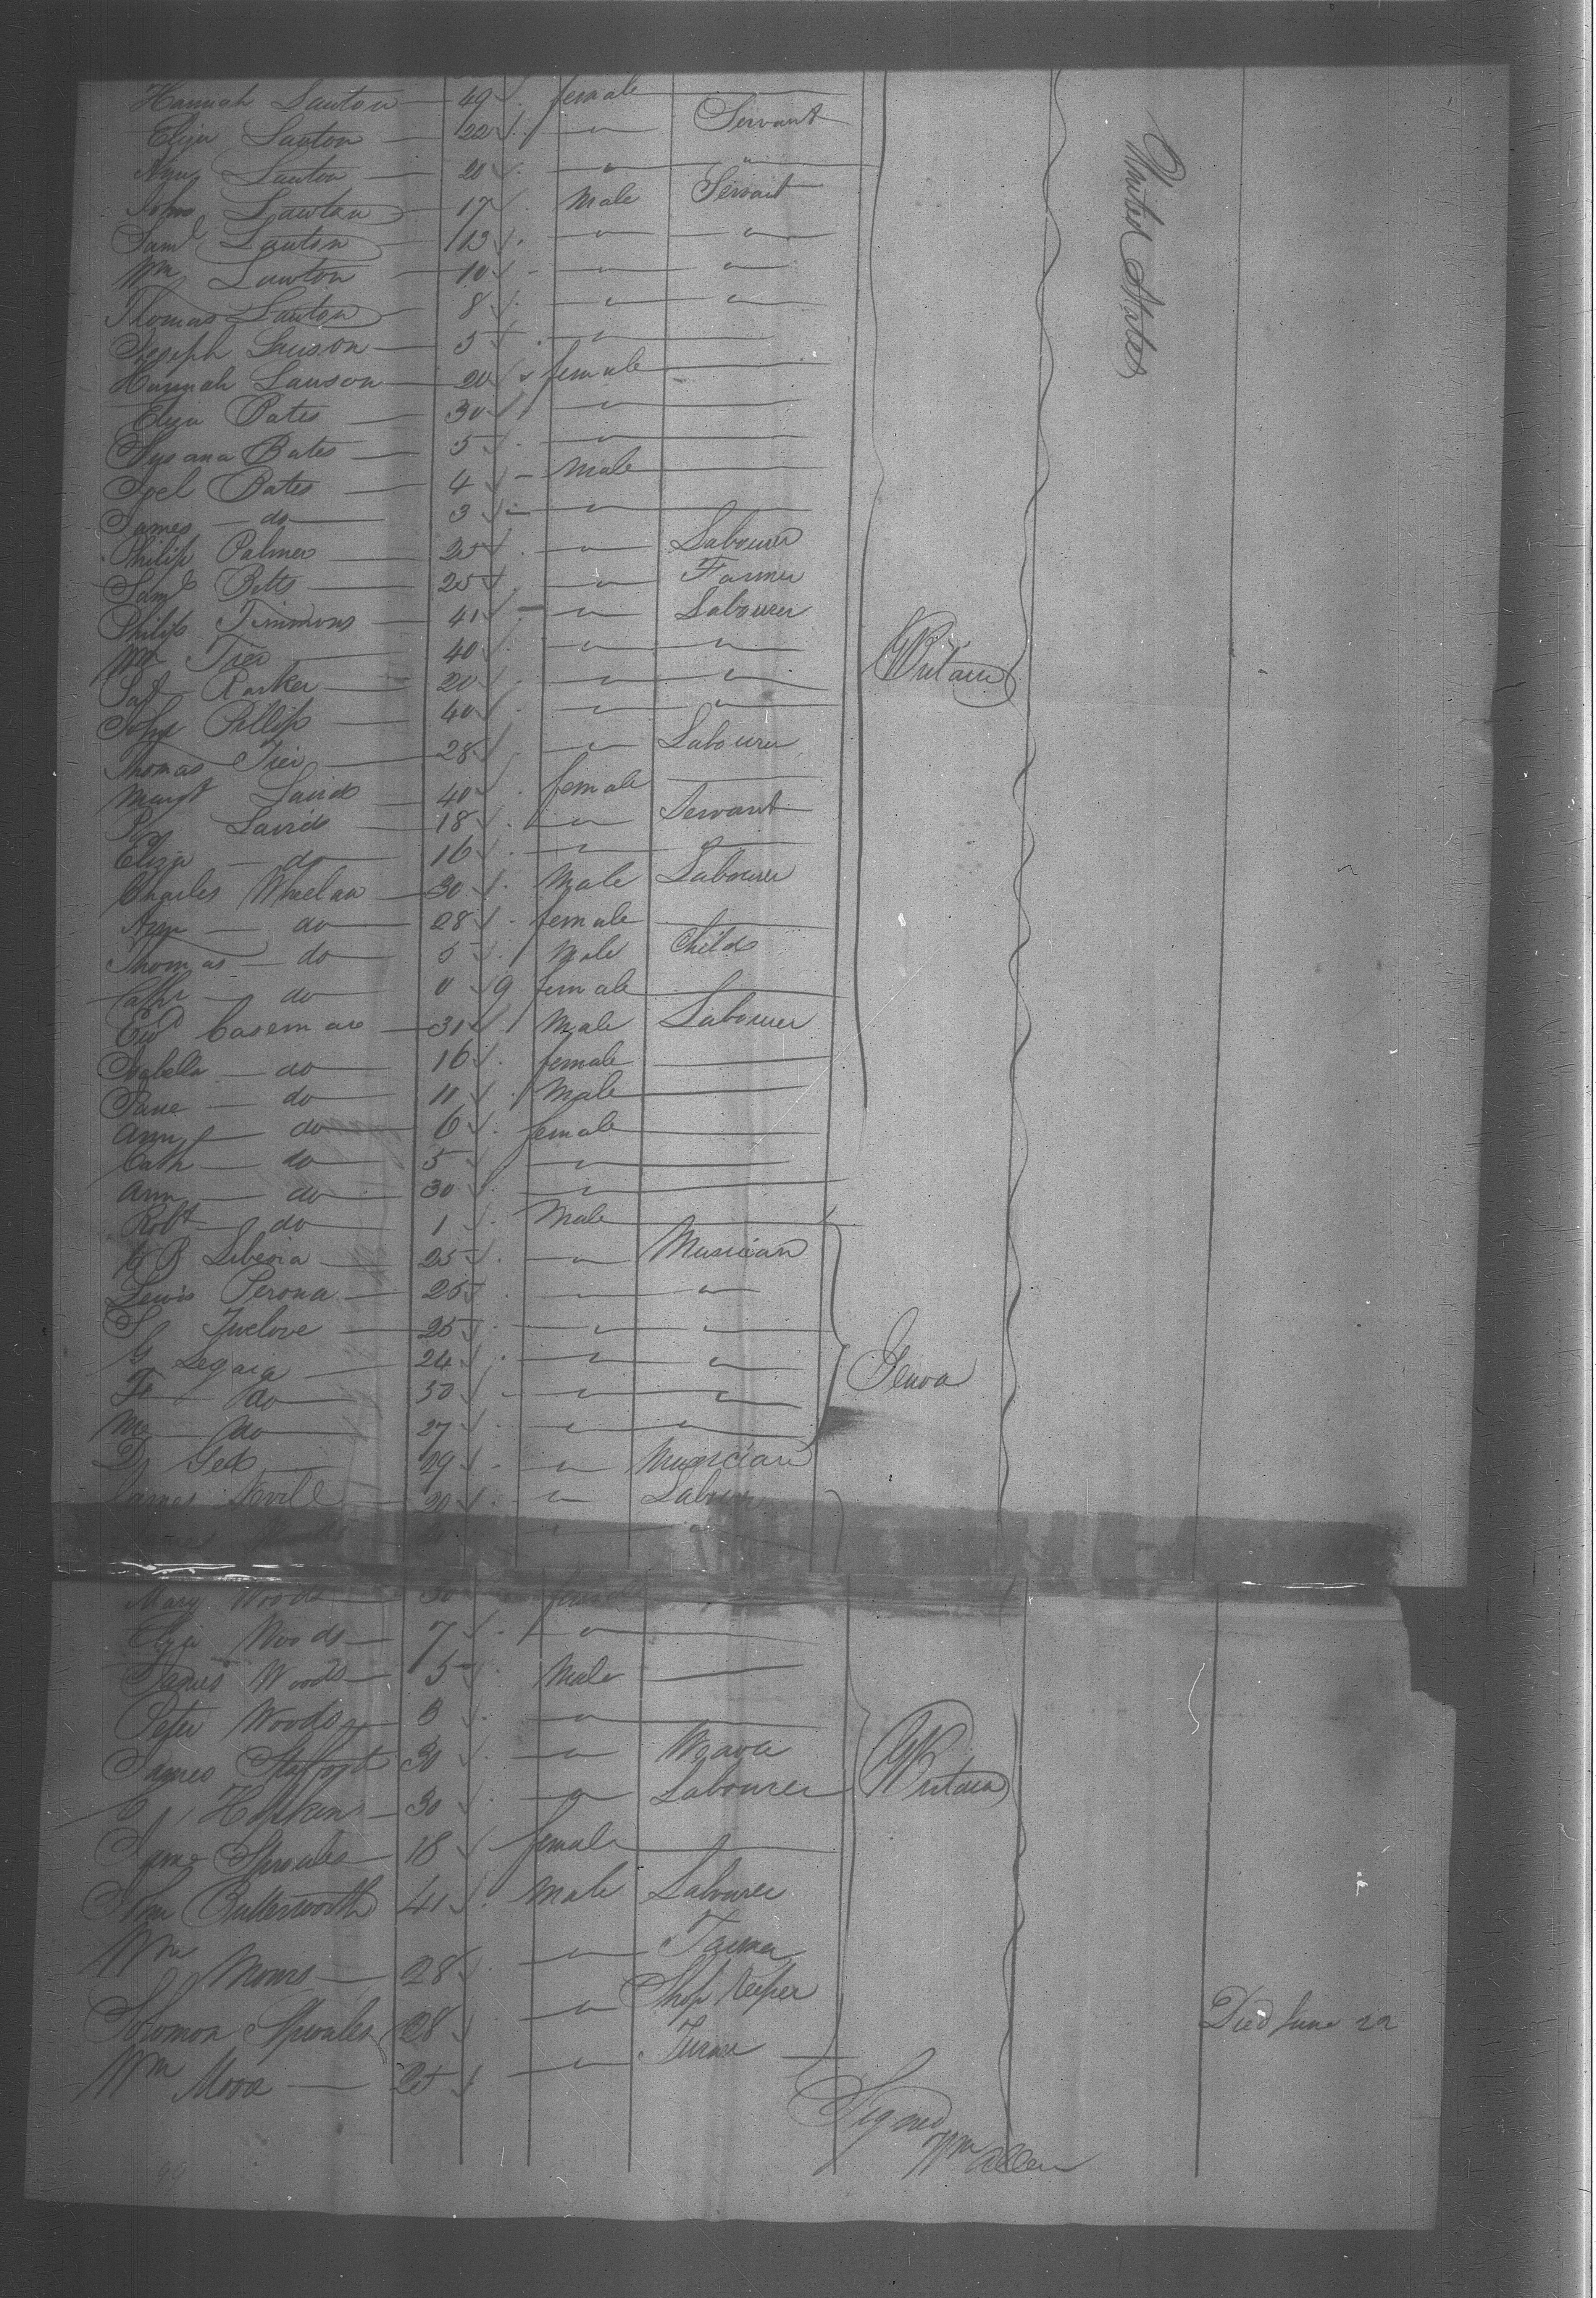 Hannah Lawton 49 female
Eliza Lawton 22 " Servant
Ann Lawton 20 " "
John Lawton 17 Male Servant
Saml Lawton 13 " "
Wm Lawton 10 " "
Thomas Lawton 8 " "
Joseph Lawson 5 "
Hannah Lawson 20 female
Eliza Bates 30 "
Susana Bates 5 "
Joel Bates 4 Male
James do 3 "
Philip Palmer 25 " Labourer
Saml Betts 25 " Farmer
Philip Timmons 41 " Labourer
Wm Tier 40 " "
Parker 20 " "
John Pillip 40 " "
Thomas Tier 28 " Labourer
Margt Laird 40 female
Laird 18 " Servant
Eliza do 16 " "
Charles Whelan 30 Male Labourer
Ann do 28 female
Thomas do 5 Male Child
Cathe do 0 9 female
Edwd Casemare 31 Male Labourer
Isabella do 16 female
Jane do 11 Male
Ann do 6 female
Cath do 5 "
Ann do 30 "
Robt do 1 Male
B Liberia 25 " Musician
Lewis Perona 25 " "
S Twelove 25 " "
G Legaia 24 " "
do 50 " "
do 27 " "
D 29 " Musician
James Nevill 30 " Labourer
Mary Woods 30 female
Eliza Woods 7 "
James Woods 5 Male
Peter Woods 3 "
James Stafford 30 " Weaver
Hopkins 30 " Labourer
Jane Sproules 18 female
John Butterworth 41 Male Labourer
Wm 28 " Farmer
Solomon Sproules 28 " Shop Keeper Died June 22
Wm Moore 25 " Turner
G Britain
Genoa
G Britain
United States
Signed
Wm Allen